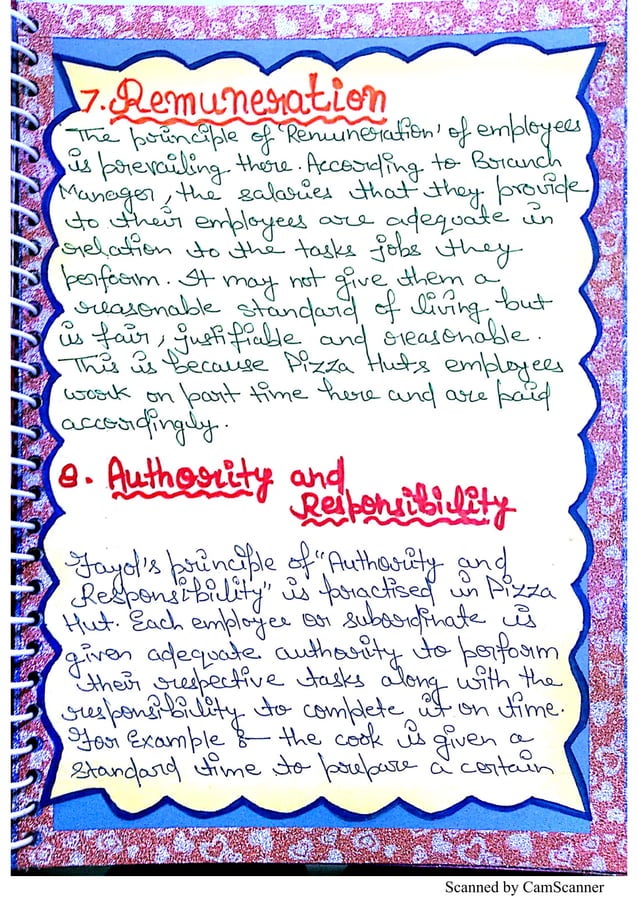 7. Remuneration
The principle of 'Remuneration' of employees
is prevailing there. According to Branch
Manager, the salaries that they provide
to their employees are adequate in
relation to the tasks jobs they
perform. It may not give them a
reasonable standard of living but
is fair, justifiable and reasonable.
This is because Pizza Huts employees
work on part time here and are paid
accordingly.
8. Authority and
Responsibility
Fayol's principle of "Authority and
Responsibility" is practised in Pizza
Hut. Each employee or subordinate is
given adequate authority to perform
their respective tasks along with the
responsibility to complete it on time.
For Example :- the cook is given a
standard time to prepare a certain
Scanned by CamScanner